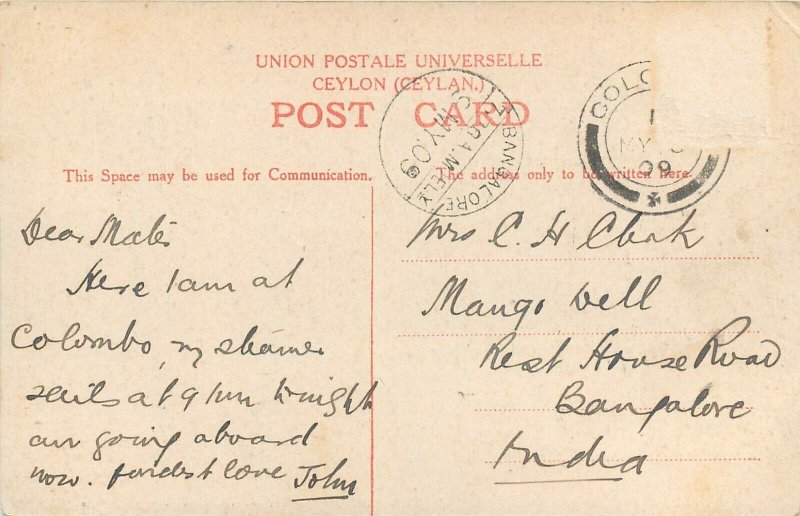 UNION POSTALE UNIVERSELLE
CEYLON (CEYLAN.)
POST CARD
BANGALORE
7.30 A.M
MY.09
COLO
MY
09
This Space may be used for Communication.
The address only to be written here.
Dear Mater
Here I am at
Colombo, my steamer
sails at 9 tonight
am going aboard
now. fondest love John
Mrs C. H Clark
Mango Dell
Rest House Road
Bangalore
India